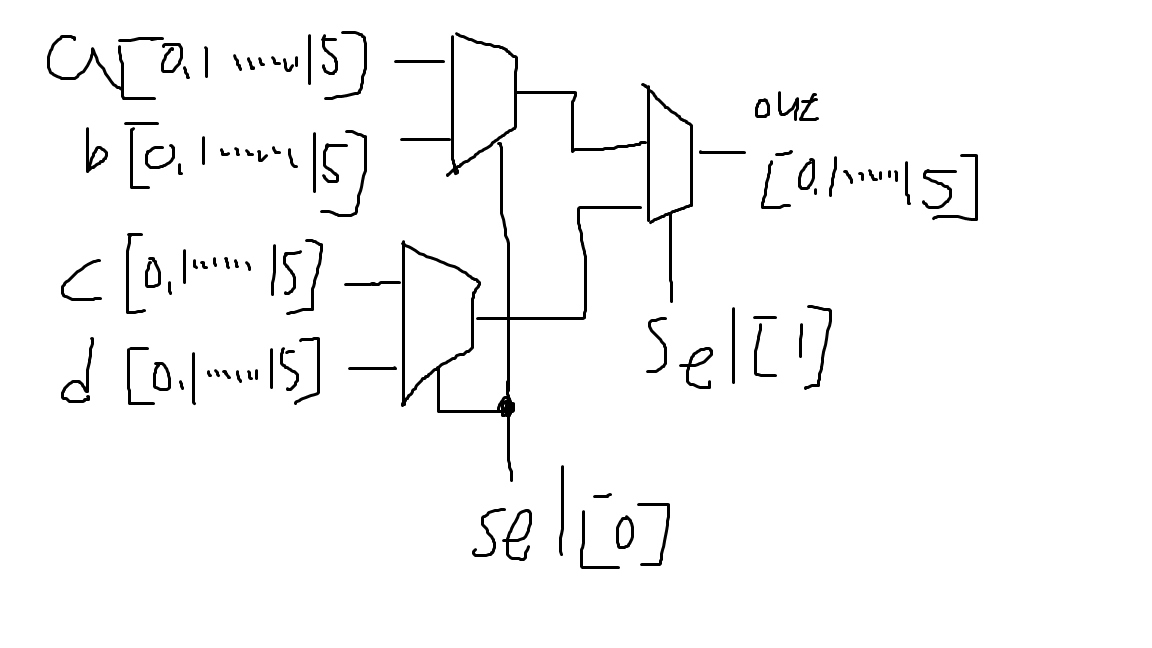 a[0,1......15]
b[0,1......15]
c[0,1......15]
d[0,1......15]
out
[0,1......15]
sel[1]
sel[0]